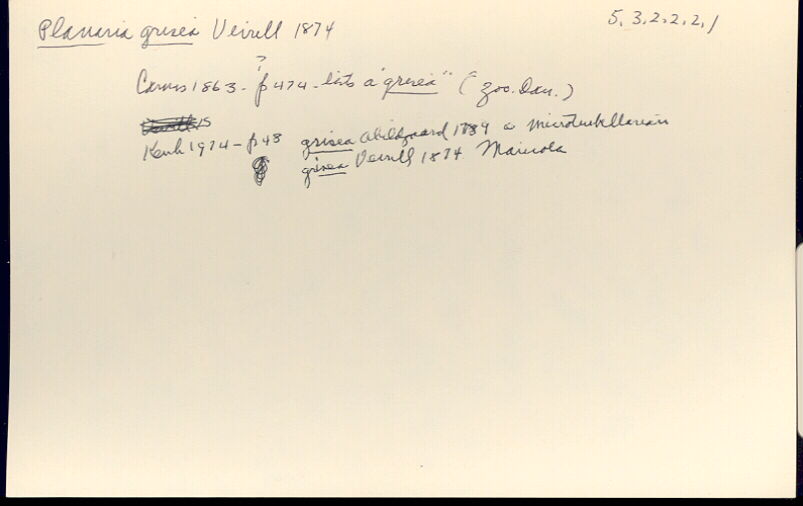 Planaria grisea Verrill 1874 5.3.2.2.2.1
?
Carus 1863 - p 474 - lists a "grisea" (Zoo. Dan.)
15
Kenk 1974 - p 48 grisea Abildgaard 1789 a microturbellarian
grisea Verrill 1874 Maricola